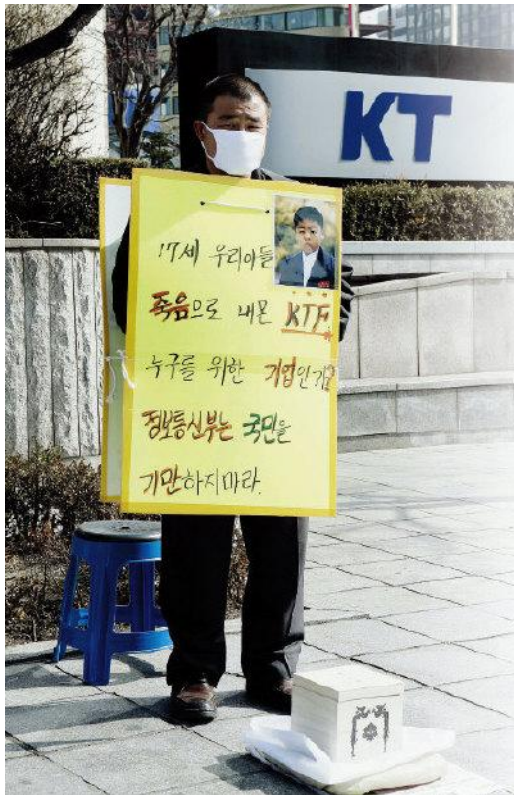 KT
17세 우리아들
죽음으로 내몬 KTF.
누구를 위한 기업인가?
정보통신부는 국민을
기만하지마라.